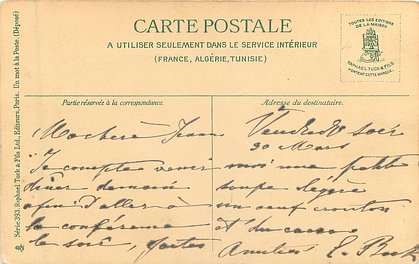 CARTE POSTALE
A UTILISER SEULEMENT DANS LE SERVICE INTÉRIEUR
(FRANCE, ALGÉRIE, TUNISIE)
TOUTES LES EDITIONS
DE LA MAISON
RAPHAEL TUCK & FILS
PORTENT CETTE MARQUE
Série 393. Raphael Tuck & Fils Ltd., Editeurs, Paris. Un mot à la Poste. (Déposé)
Partie réservée à la correspondance.
Ma chère Jeanne
Je compte venir
dîner demain
afin d'aller à
la conférence
le soir, faites
Adresse du destinataire.
Vendredi soir
30 Mars
moi une petite
soupe légère
un oeuf croûton
et du cacao
Amitiés E.